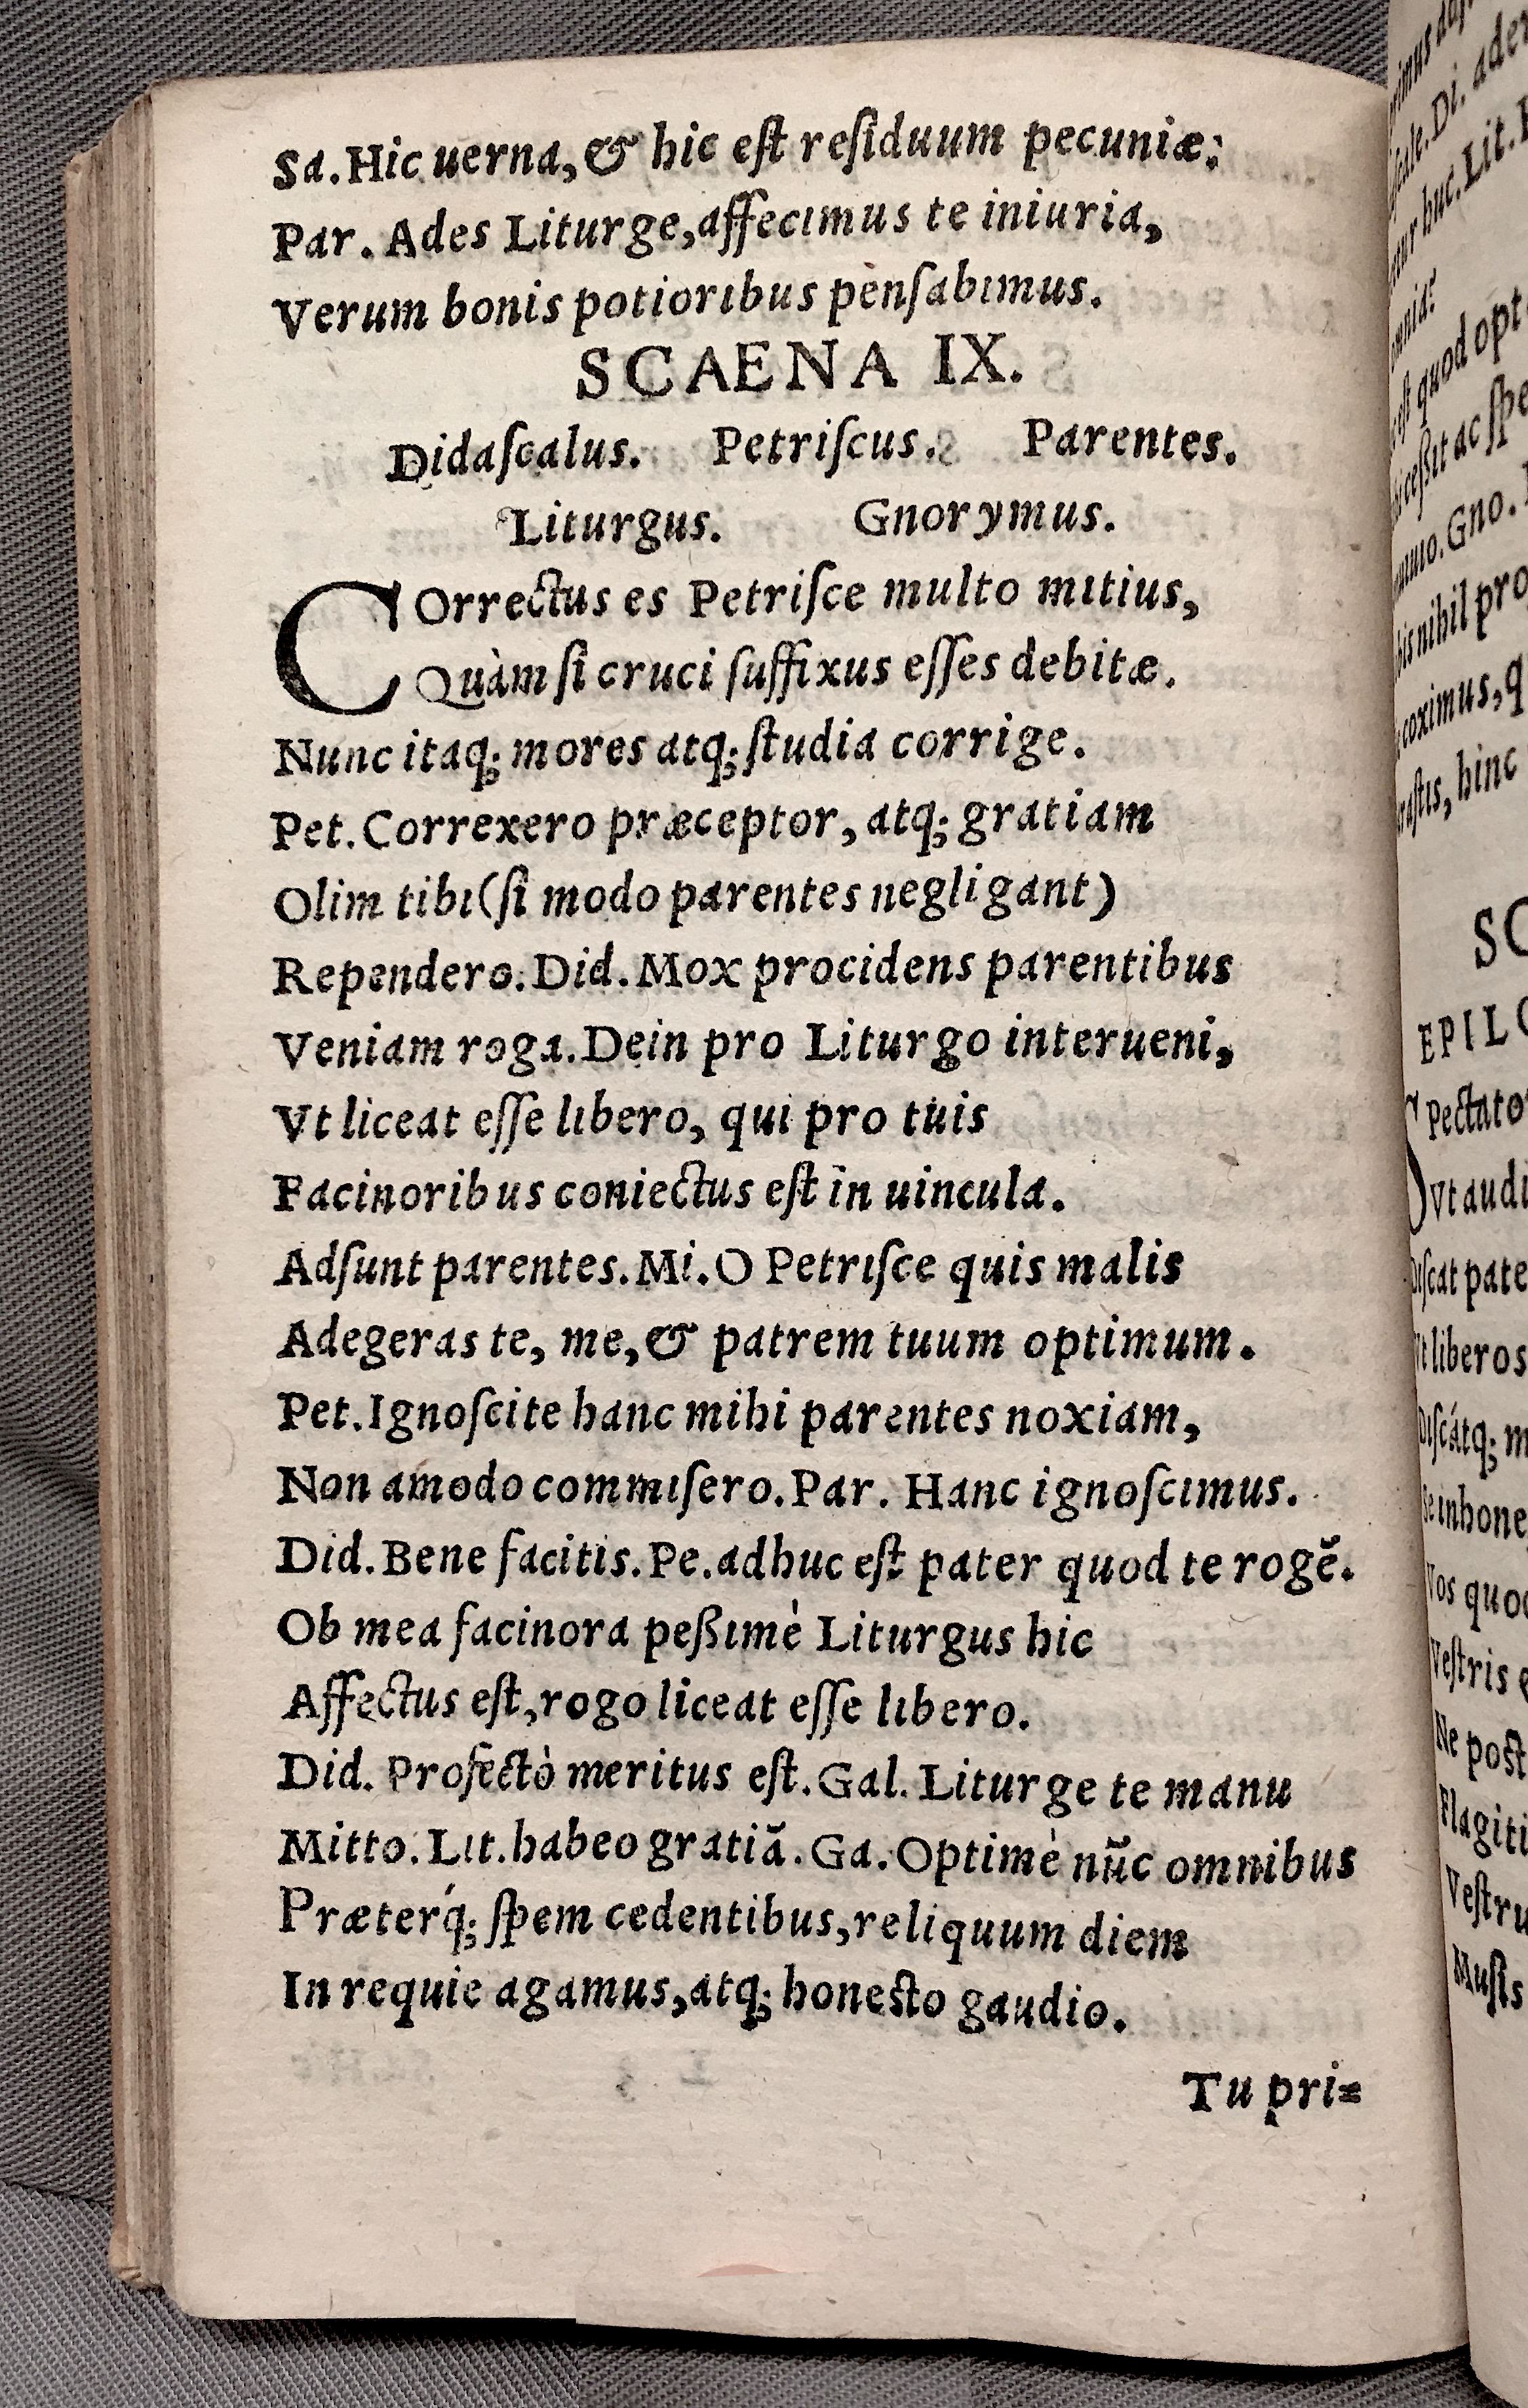 Sa. Hic uerna, & hic eſt reſiduum pecuniæ:
Par. Ades Liturge, affecimus te iniuria,
Verum bonis potioribus penſabimus.
SCAENA IX.
Didaſcalus. Petriſcus. Parentes.
Liturgus. Gnorymus.
COrrectus es Petriſce multo mitius,
Quàm ſi cruci ſuffixus eſſes debitæ.
Nunc itaq; mores atq; ſtudia corrige.
Pet. Correxero præceptor, atq; gratiam
Olim tibi (ſi modo parentes negligant)
Rependero. Did. Mox procidens parentibus
Veniam roga. Dein pro Liturgo interueni,
Vt liceat eſſe libero, qui pro tuis
Facinoribus coniectus eſt in uincula.
Adſunt parentes. Mi. O Petriſce quis malis
Adegeras te, me, & patrem tuum optimum.
Pet. Ignoſcite hanc mihi parentes noxiam,
Non amodo commiſero. Par. Hanc ignoſcimus.
Did. Bene facitis. Pe. adhuc eſt pater quod te rogẽ.
Ob mea facinora peßimè Liturgus hic
Affectus eſt, rogo liceat eſſe libero.
Did. Profectò meritus eſt. Gal. Liturge te manu
Mitto. Lit. habeo gratiã. Ga. Optimè nũc omnibus
Præterq́; ſpem cedentibus, reliquum diem
In requie agamus, atq; honeſto gaudio.
Tu pri=
SC
EPILO
Pectato
Vt audi
Diſcat pate
Vt liberos
Diſcátq; m
Se inhone
Vos quo
Veſtris
Ne poſt
Flagiti
Veſtru
Muſis